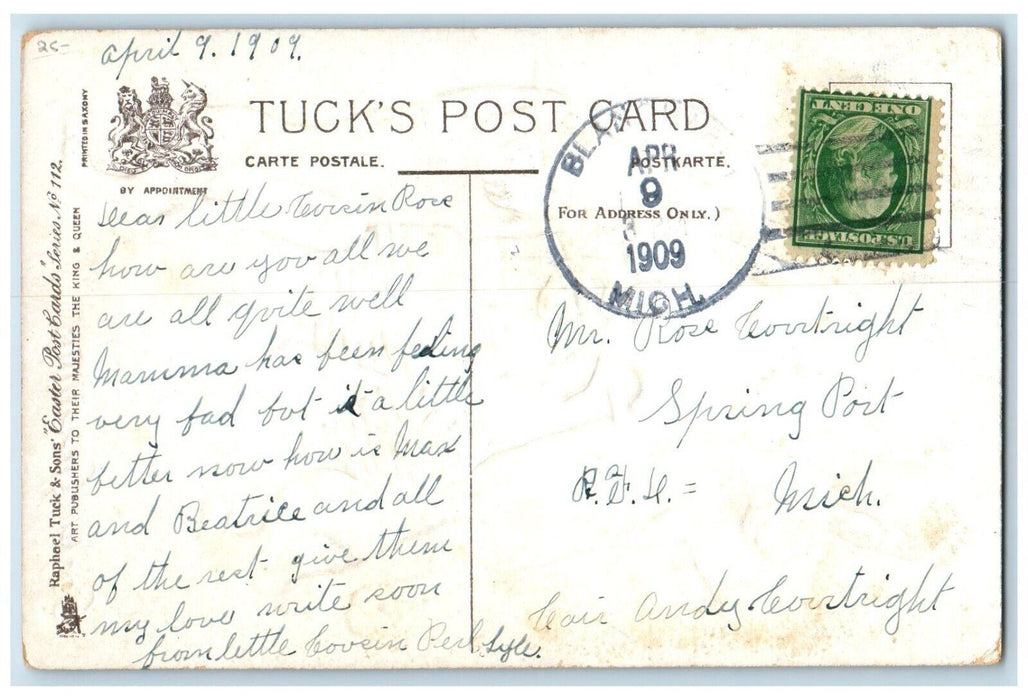 25-
April 9. 1909.
PRINTED IN SAXONY
BY APPOINTMENT
TUCK'S POST CARD
CARTE POSTALE.
POSTKARTE.
(FOR ADDRESS ONLY.)
APR
9
1909
MICH.
ONE CENT
U.S. POSTAGE
Raphael Tuck & Sons' "Easter Post Cards" Series No 112.
ART PUBLISHERS TO THEIR MAJESTIES THE KING & QUEEN
Dear little Coosin Rose
how are you all we
are all qvite well
Mamma has been feeling
very bad but is a little
better now how is Max
and Beatrice and all
of the rest give them
my love write soon
from little Coosin Perl Lyle.
Mr. Rose Cortright
Spring Port
Mich.
Cair Andy Cortright